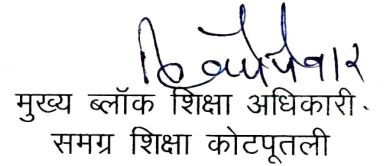 मुख्य ब्लॉक शिक्षा अधिकारी.
समग्र शिक्षा कोटपूतली